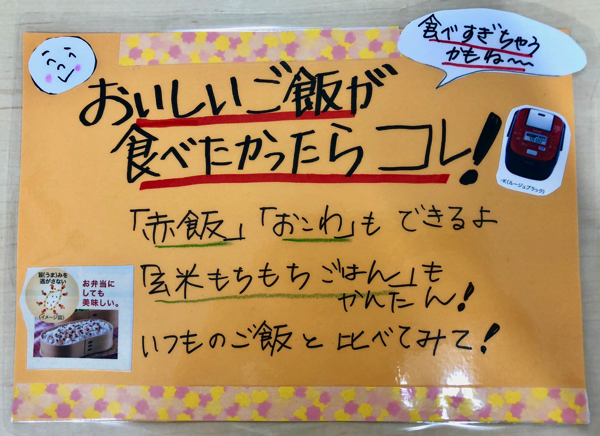 食べすぎちゃう
かもね〜
おいしいご飯が
食べたかったらコレ!
-K(ルージュブラック)
「赤飯」「おこわ」もできるよ
「玄米もちもちごはん」も
かんたん!
いつものご飯と比べてみて!
旨(うま)みを
逃がさない
(イメージ図)
お弁当に
しても
美味しい。